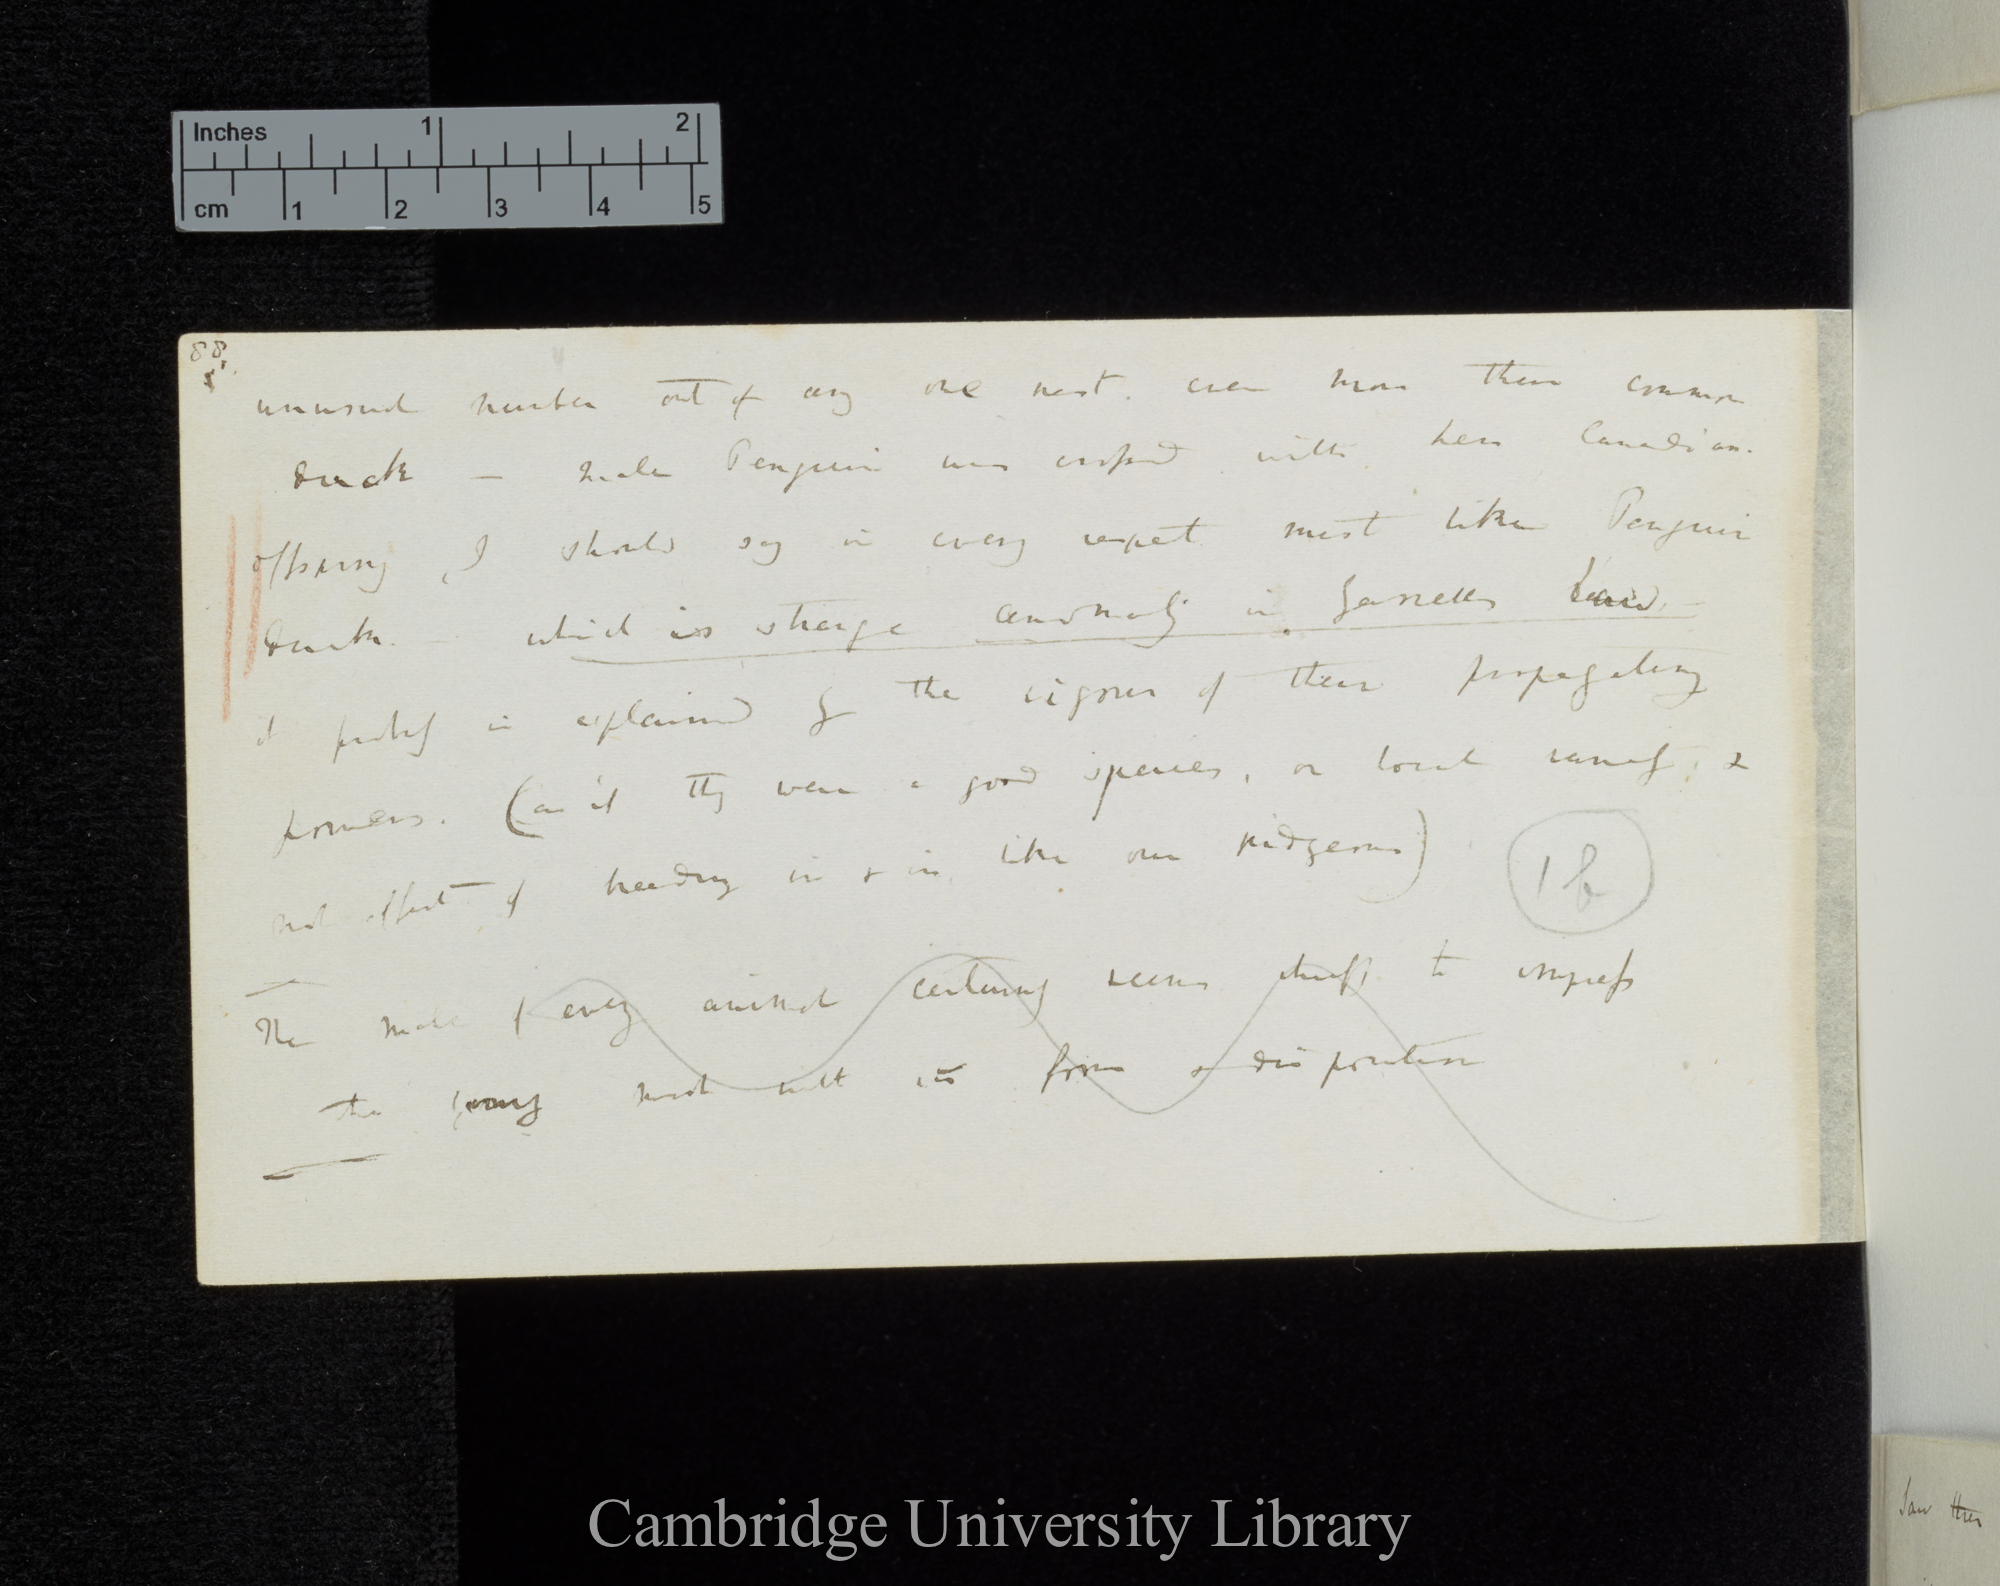 Inches 1 2
cm 1 2 3 4 5
88
unusual number out of any one nest. even more than common
duck — male Penguin was crossed with hen Canadian.
offspring, I should say in every respect most like Penguin
duck. — which is strange anomaly in Yarrell's law —
it probably is explained by the vigour of their propagating
powers. (as if they were a good species, or local variety, &
not effect of breeding in & in, like our pidgeons)
16
The male of every animal certainly seems chiefly to impress
the young most with its form & disposition
Cambridge University Library